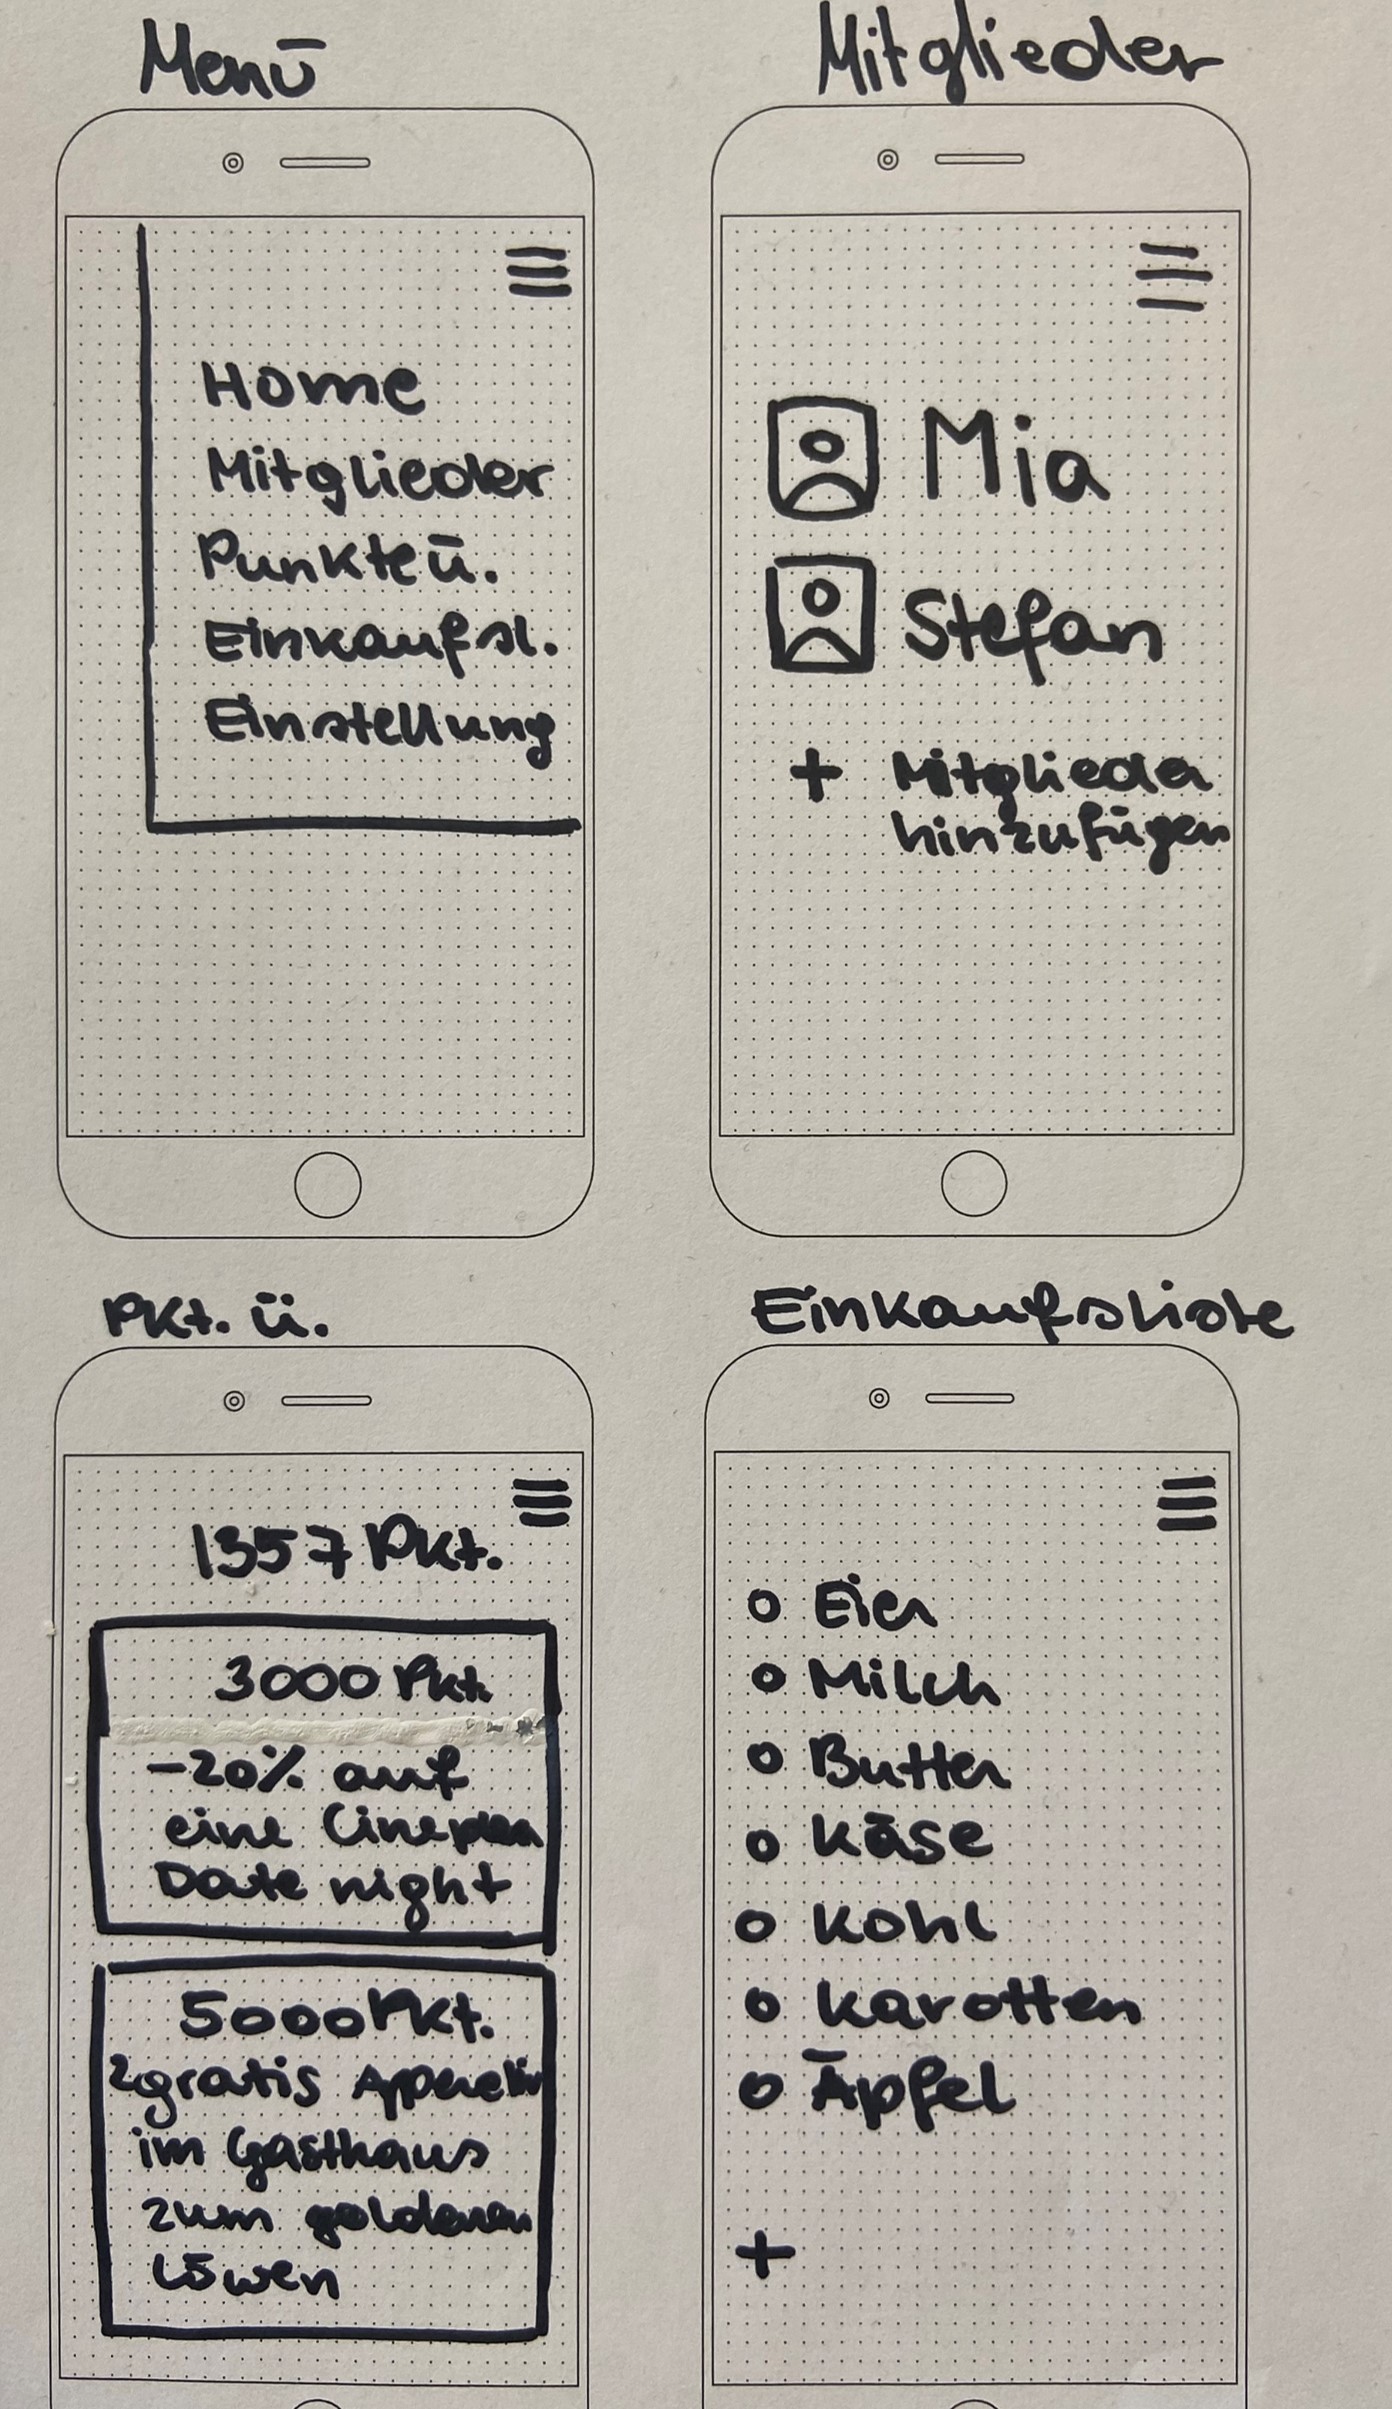 Menü
Home
Mitglieder
Punkteü.
Einkaufsl.
Einstellung
Mitglieder
Mia
Stefan
+ Mitglieder
hinzufügen
Pkt. ü.
1357 Pkt.
3000 Pkt.
-20% auf
eine
Date night
5000 Pkt.
2 gratis
im Gasthaus
zum goldenen
Löwen
Einkaufsliste
Eier
Milch
Butter
Käse
Kohl
Karotten
Äpfel
+